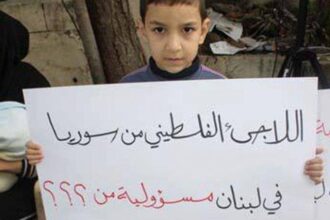 اللاجئ الفلسطيني من سوريا
في لبنان مسؤولية من ؟؟؟